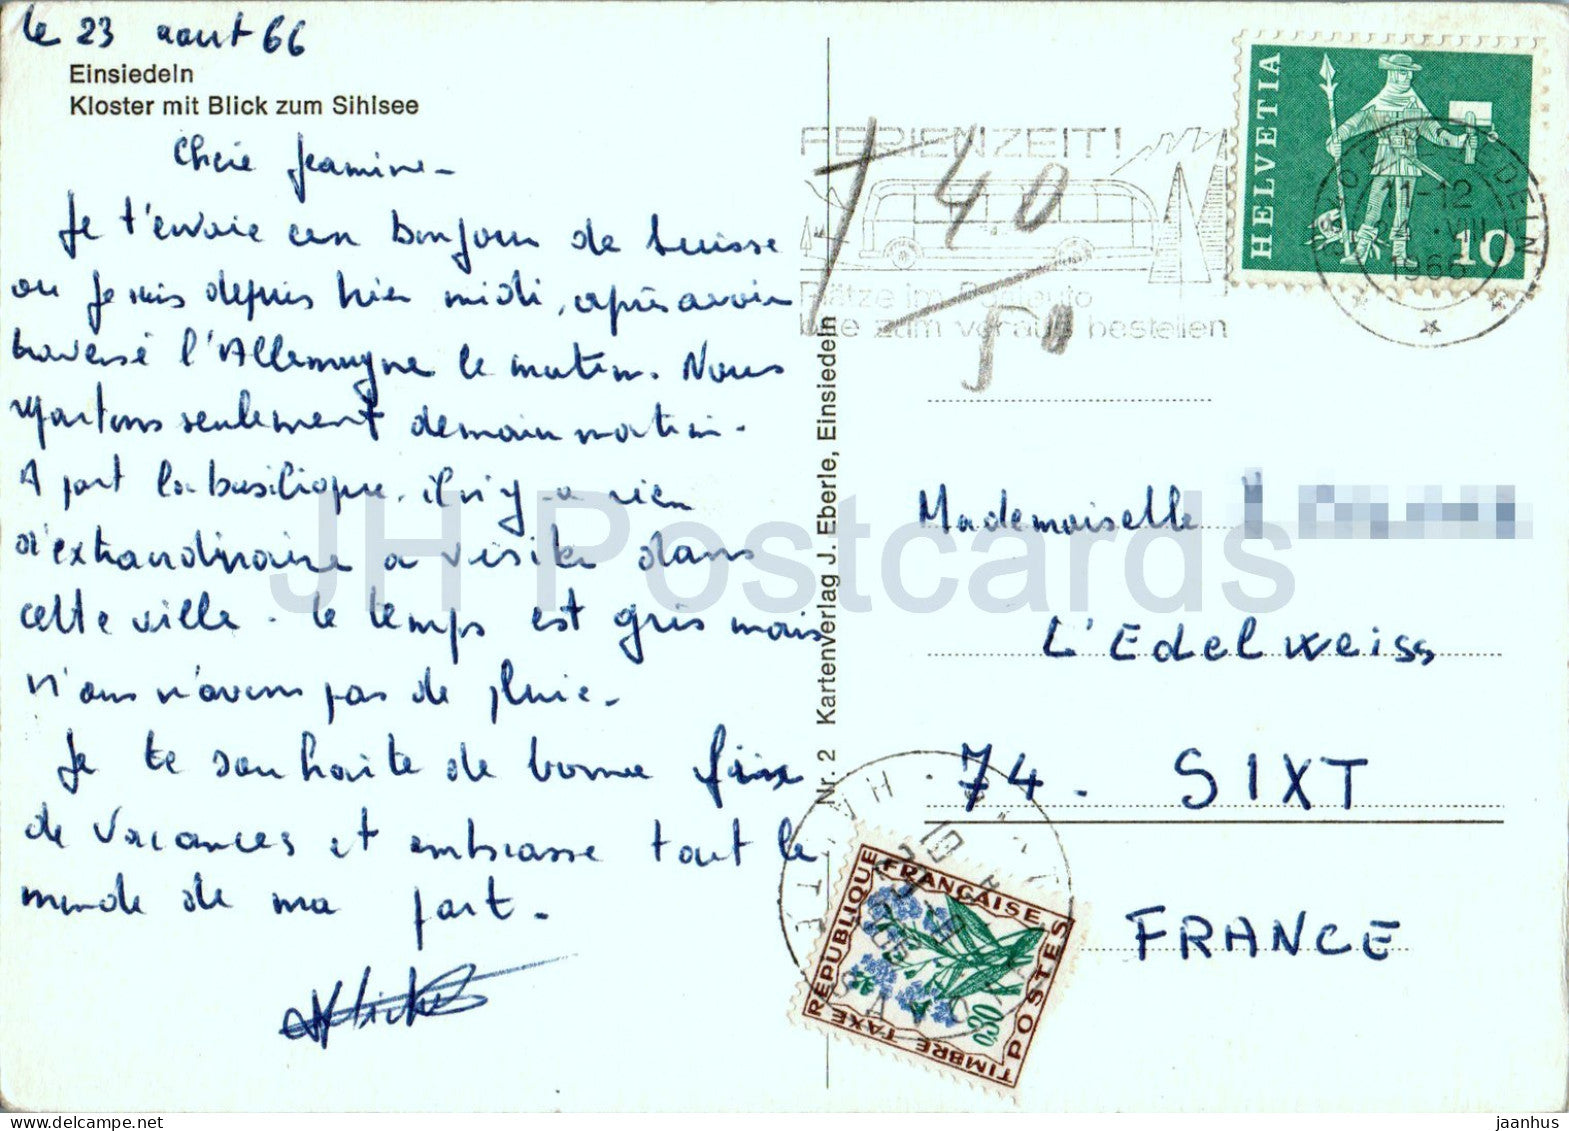 le 23 aout 66
Einsiedeln
Kloster mit Blick zum Sihlsee
Chère Jeannine -
Je t'envoie un bonjour de Suisse
ou je suis depuis hier midi, après avoir
traversé l'Allemagne le matin. Nous
repartons seulement demain matin.
A part la basilique, il n'y a rien
d'extraordinaire a visiter dans
cette ville. Le temps est gris mais
nous n'avons pas de pluie.
Je te souhaite de bonnes fin
de vacances et embrasse tout le
monde de ma part.
Nr. 2 Kartenverlag J. Eberle, Einsiedeln
FERIENZEIT!
Plätze im Postauto
bitte zum voraus bestellen
T 40
50
HELVETIA
10
EINSIEDELN
11-12
24.VIII
1966
Mademoiselle
L'Edelweiss
74. SIXT
FRANCE
RÉPUBLIQUE FRANÇAISE
POSTES
TIMBRE TAXE
0,30
HAUTE SAVOIE
JH Postcards
www.jhpostcards.com
jaanhus